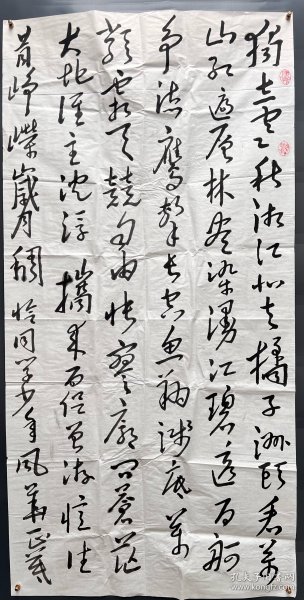 独立寒秋湘江北去橘子洲头看万
山红遍层林尽染漫江碧透百舸
争流鹰击长空鱼翔浅底万
类霜天竞自由怅寥廓问苍茫
大地谁主沉浮 携来百侣曾游忆往
昔峥嵘岁月稠恰同学少年风华正茂
孔夫子旧书网